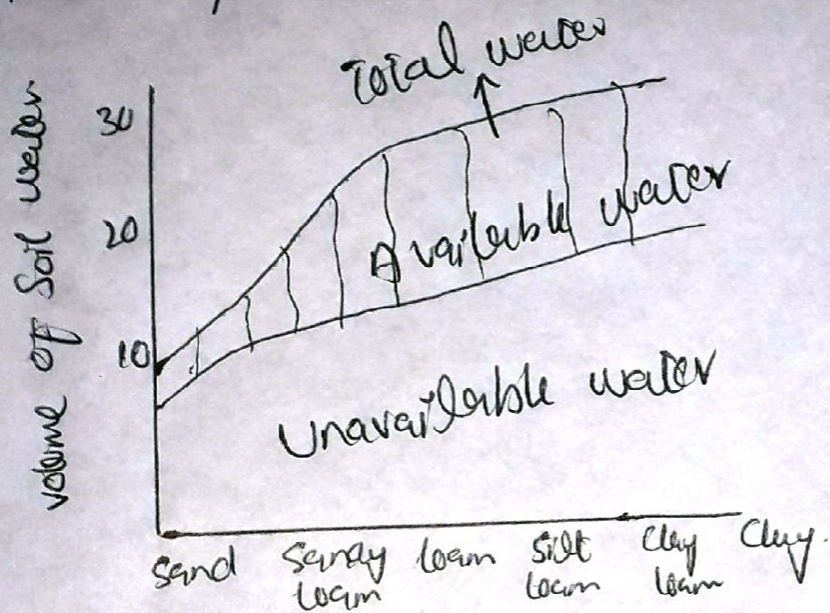 Total water
30
20
10
volume of Soil water
Available water
Unavailable water
Sand
Sandy loam
loam
Silt loam
Clay loam
Clay.